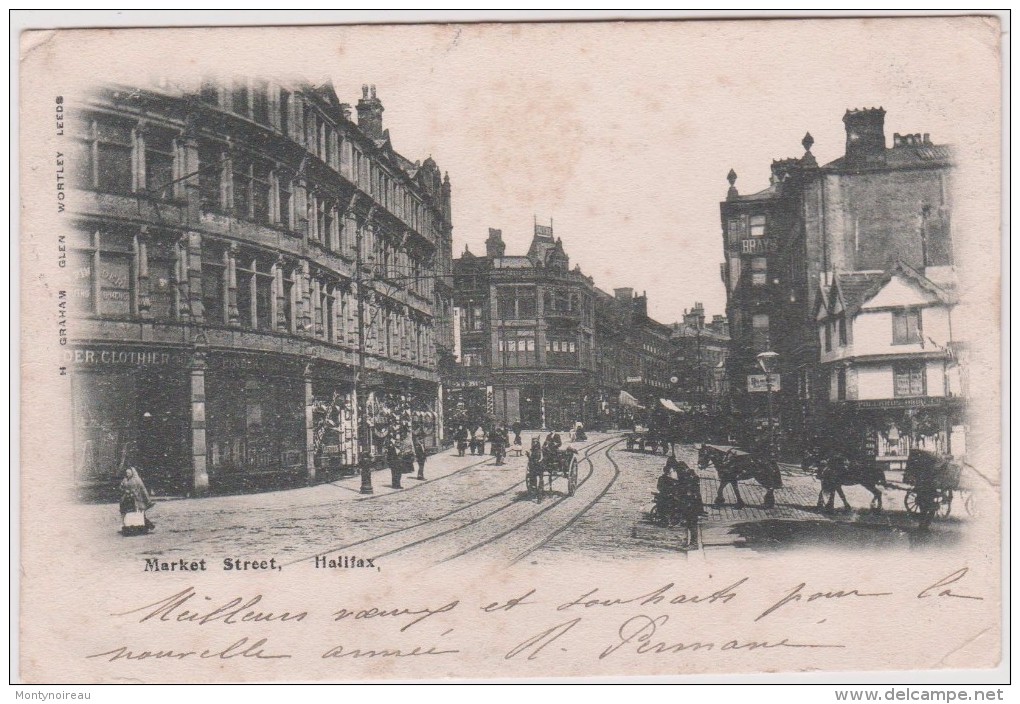 H GRAHAM GLEN WORTLEY LEEDS
DER, CLOTHIER
BRAY
Market Street, Halifax,
Meilleurs vœux et souhaits pour la
nouvelle année
Montynoireau
www.delcampe.net